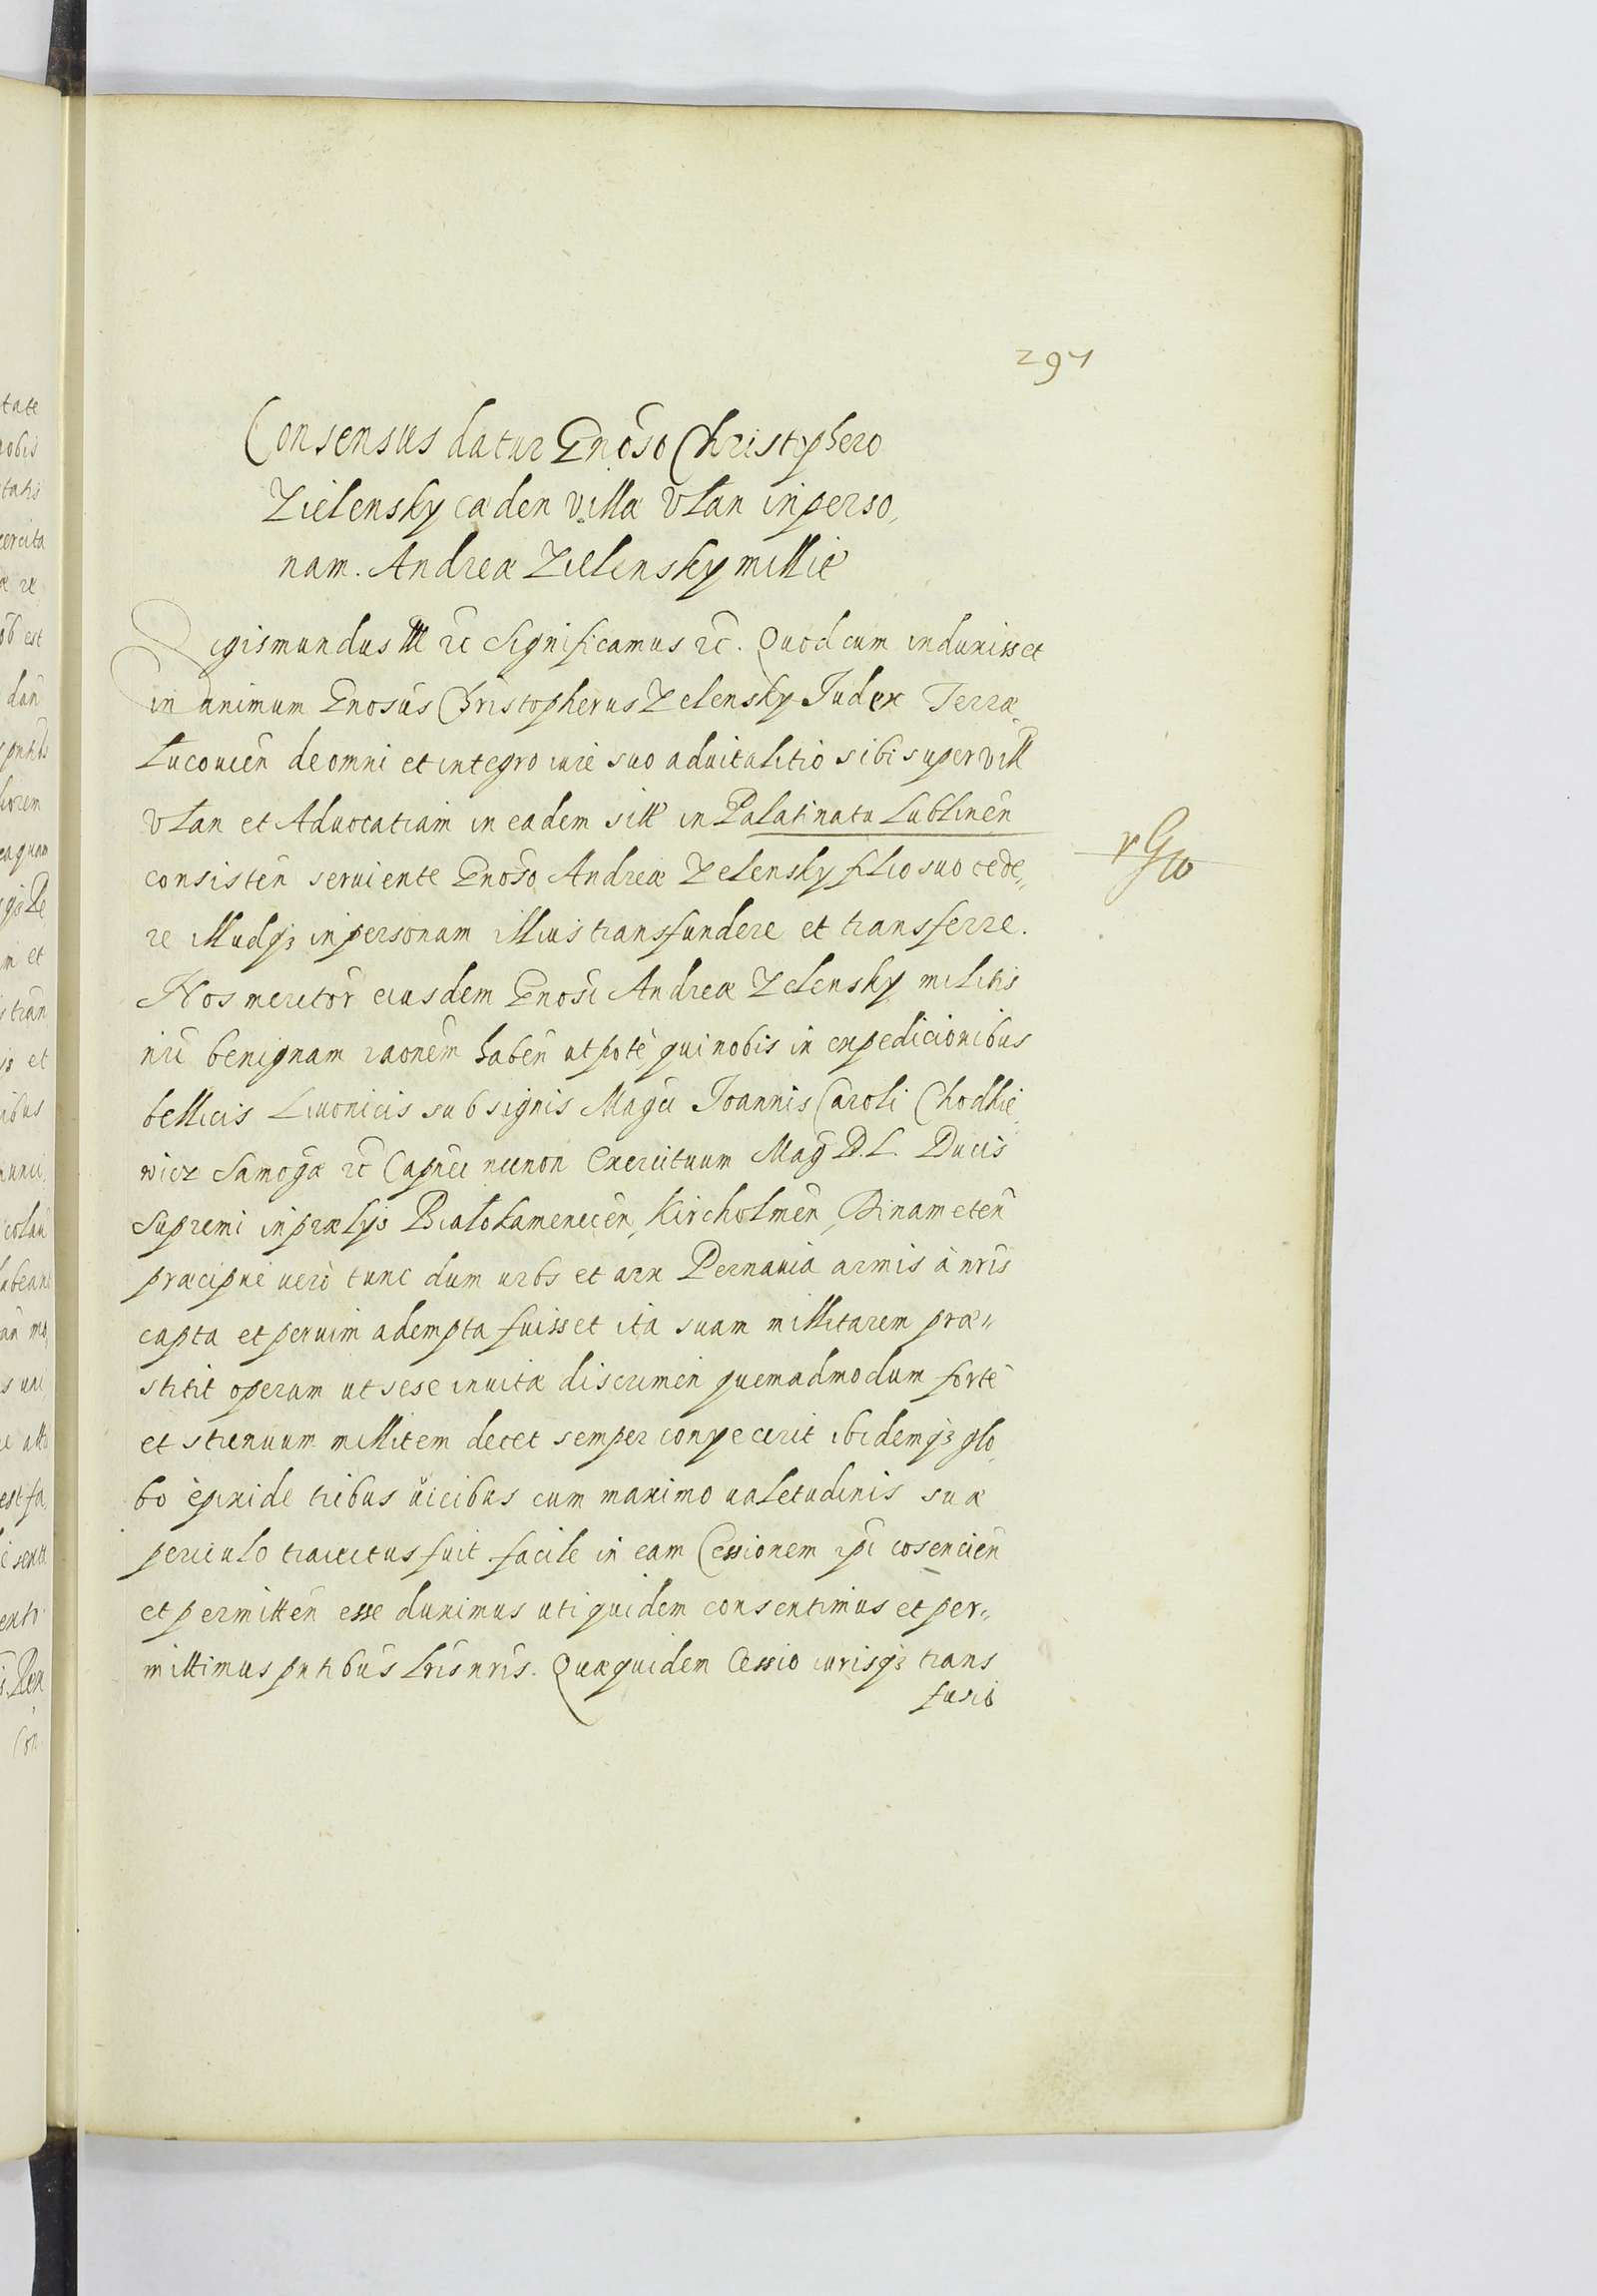 297
Consensus datur Gnoso Christphero
Zielensky caden villa Vlan in perso,
nam. Andreæ Zielensky millit
Sigismundus III rc Significamus rc. Quod cum induxisset
in animum Gnosus Christopherus Zelensky Judex Terræ
Lucouien de omni et integro iure suo aduitalitio sibi super vill
Vlan et Aduocatiam in eadem vill in Palatinatu Lublinen
consisten seruiente Gnoso Andreæ Zelensky filio suo cede„
re illudqz in personam illius transfundere et transferre.
Nos meritor eiusdem Gnosi Andreæ Zelensky militis
nri benignam raonem haben utpote qui nobis in expedicionibus
bellicis Liuonicis sub signis Magci Joannis Caroli Chodkie
wicz Samogæ rc Capnei necnon Exercituum Mag D. L. Ducis
Supremi in prælys Bialokamenecen, Kircholmen, Dinameten
præcipue uero tunc dum urbs et arx Pernauia armis à nris
capta et per uim adempta fuisset ita suam millitarem præ„
stitit operam ut sese in uitæ discrimen quemadmodum forte
et strenuum millitem decet semper conyecerit ibidemqz glo
bo è pixide tribus uicibus cum maximo ualetudinis suæ
periculo traiectus fuit facile in eam Cessionem ipi cosencien
et permitten esse duximus uti quidem consentimus et per„
mittimus pntibus Lris nris. Quæquidem Cessio iurisqz trans
fusio